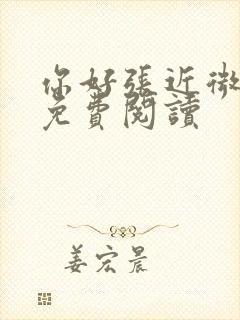 你好張近微
免費閱讀
姜宏晨